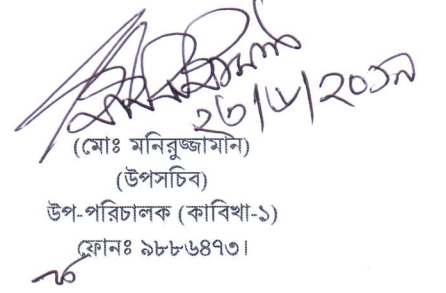 ২৬/৬/২০১৯
(মোঃ মনিরুজ্জামান)
(উপসচিব)
উপ-পরিচালক (কাবিখা-১)
ফোনঃ ৯৮৮৬৪৭৩।